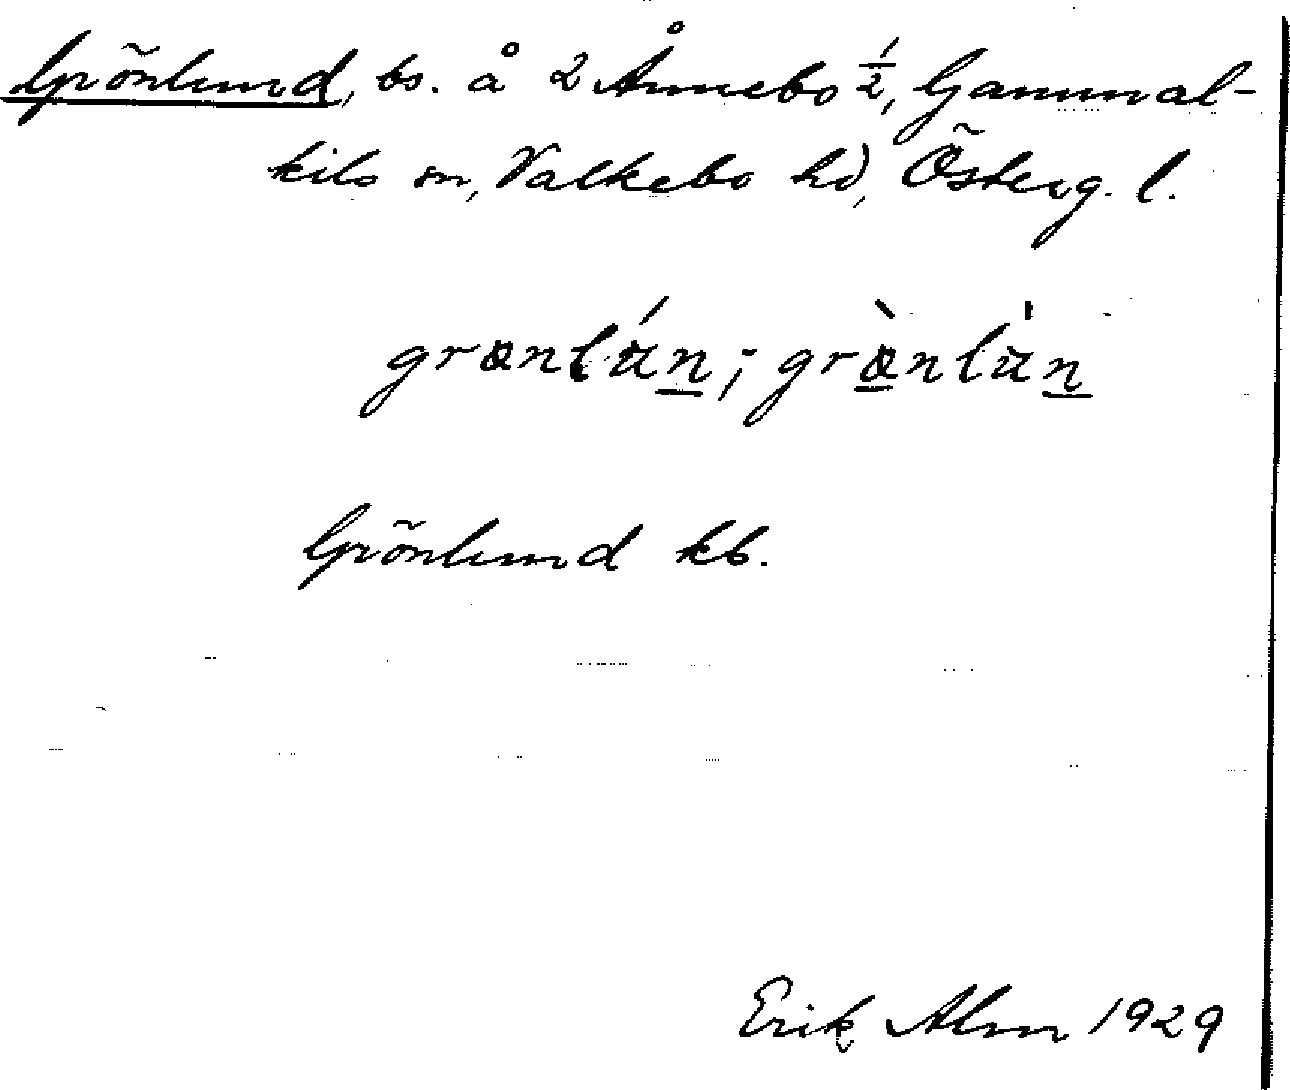 Grönlund, bs. å 2 Ånnebo ½, Gammal-
kils sn, Valkebo hd, Österg. l.
grœnlún; grœ̀nlu̇n
Grönlund kb.
Erik Alm 1929